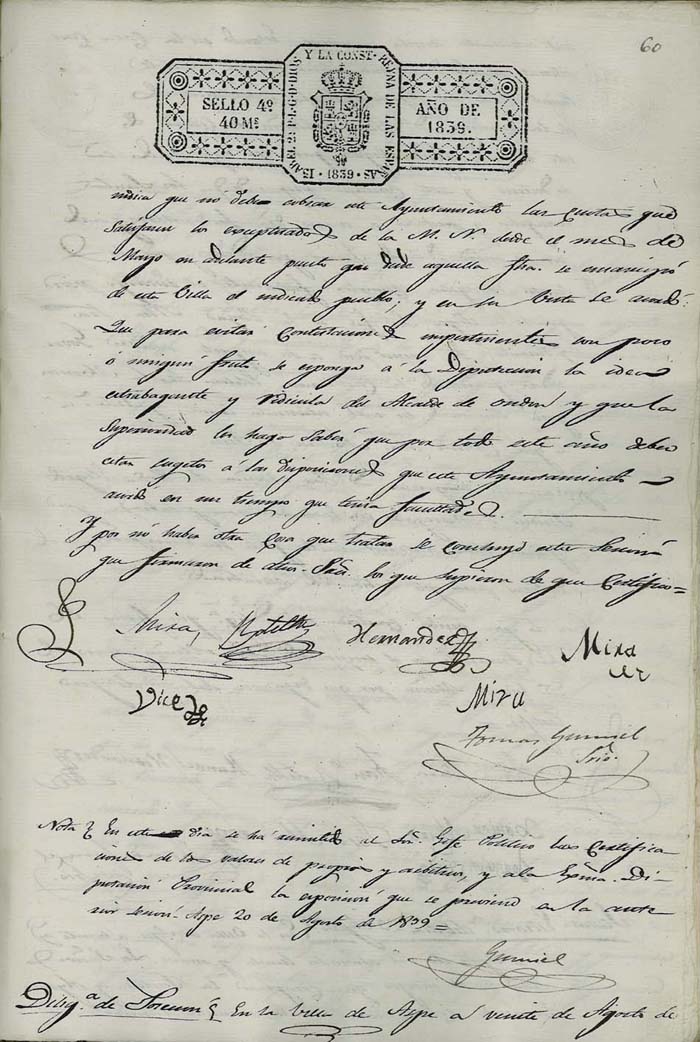 60
ISABEL 2ª P.L.G.D.DIOS Y LA CONST. REYNA DE LAS ESPAÑAS
SELLO 4º
40 Mº
AÑO DE
1839.
1839
indica que nó debe cobrar este Ayuntamiento las cuotas que
satisfacen los exceptuados de la M. N. desde el mes de
Mayo en adelante puesto que desde aquella fha. se emancipó
de esta Villa el indicado pueblo; y en su vista se acordó:
Que para evitar contestaciones impertinentes con poco
ó ningún fruto se esponga á la Diputacion la idea
estrabagante y ridicula del Alcalde de Ondon y que la
Superioridad les haga saber que por todo este año deben
estar sugetos á las disposiciones que este Ayuntamiento
acordó en un tiempo que tenia facultades.
Y por nó haber otra cosa que tratar se concluyó esta Sesion
que firmaron de dhos. Sres. los que supieron de que Certifico=
Mira,
Botella
Hernandez
Mira
Vicedo
Mira
Tomas Gumiel
Srio.
Nota En este dia se há remitido al Sor. Gefe Politico las Certifica
ciones de los valores de propios y arbitrios, y á la Exma. Di
putación Provincial la esposición que se previene en la ante
rior sesion. Aspe 20 de Agosto de 1839=
Gumiel
Dilig.ª de Sesion En la Villa de Aspe á veinte de Agosto de